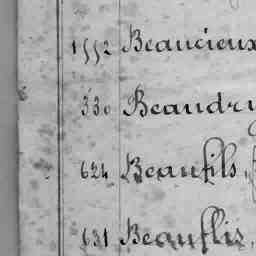 1552 Beaucieux
330 Beaudry
624 Beaufils,
631 Beauflis,